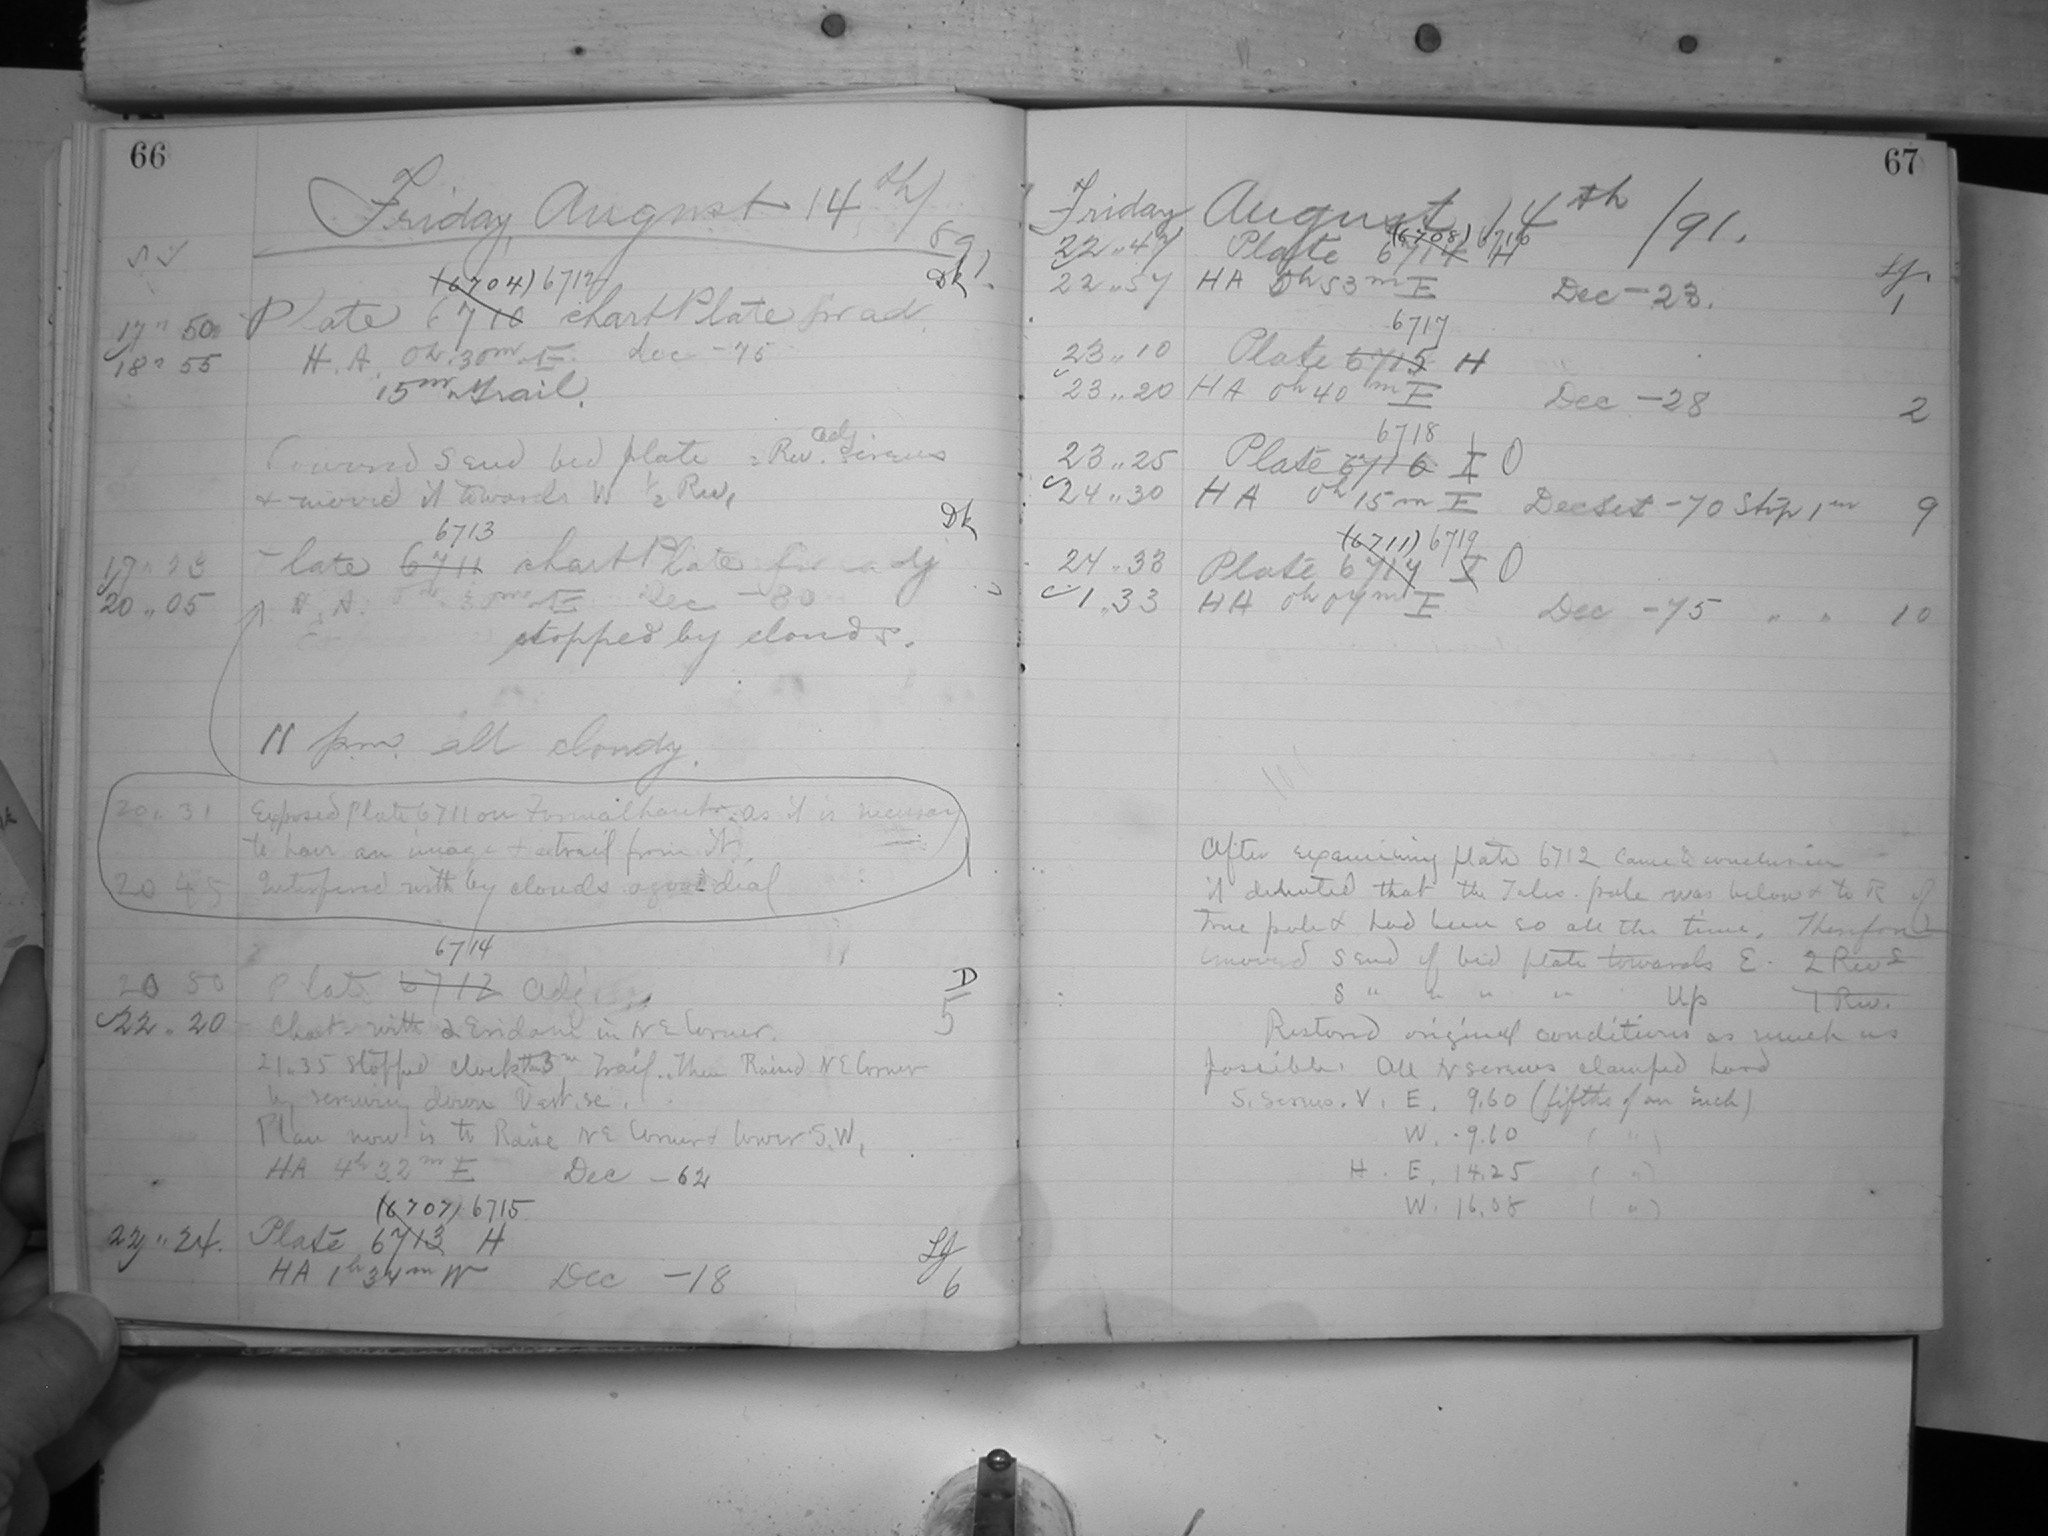 66
Friday August 14th /91.
(6704) 6712 Dk
17 " 50 Plate 6710 chart Plate for ad.
18 " 55 H. A. 0h. 30m. E. dec -75
15m Trail.
Lowered S end bed plate Rev. adj screws
& moved it towards W 1/2 Rev.
6713 Dk
17 " 23 Plate 6711 chart Plate for adj
20 " 05 H. A. 0h. 30m E Dec -80
stopped by clouds.
11 p.m. all cloudy.
20 " 31 Exposed Plate 6711 on Fomalhaut as it is necessary
to have an image & a trail from it.
20 45 Interfered with by clouds a good deal
6714
20 50 Plate 6712 adj. D
22 " 20 Chart with α Eridani in NE Corner. 5
21.35 Stopped clock 3m Trail. Then Raised NE Corner
by screwing down Vert. sc.
Plan now is to Raise NE Corner & lower S.W.
HA 4h 32m E Dec -62
(6707) 6715
22 " 24. Plate 6713 H Lg
HA 1h 34m W Dec -18 6
67
Friday August 14th /91.
(6708) 6716
22 " 47 Plate 6714 H Lg.
22 " 57 HA 0h 53m E Dec -23. 1
6717
23 " 10 Plate 6715 H
23 " 20 HA 0h 40m E Dec -28 2
6718
23 " 25 Plate 6716 I O
24 " 30 HA 0h 15m E Dec set -70 Stop 1m 9
(6711) 6719
24 " 33 Plate 6717 I O
1 " 33 HA 0h 04m E Dec -75 " " 10
After examining plate 6712 came to conclusion
it denoted that the Teles. pole was below & to R of
True pole & had been so all the time. Therefore
moved S end of bed plate towards E. 2 Revs
S " " " " Up 1 Rev.
Restored original conditions as much as
possible. All N screws clamped hard
S. screws. V. E. 9.60 (fifths of an inch)
W. 9.60 ( " )
H. E. 14.25 ( " )
W. 16.08 ( " )